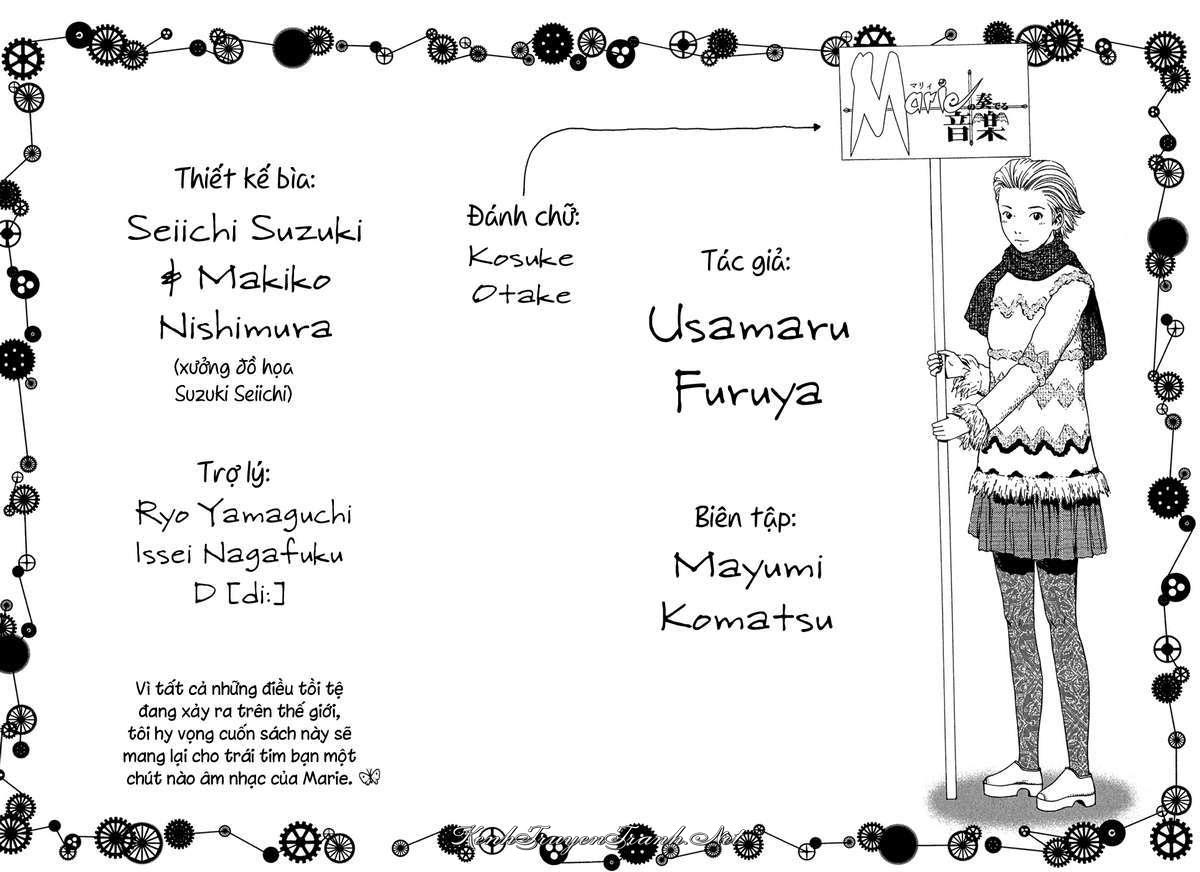 Marie
マリィ
の奏でる
音楽
Thiết kế bìa:
Seiichi Suzuki
& Makiko
Nishimura
(xưởng đồ họa
Suzuki Seiichi)
Trợ lý:
Ryo Yamaguchi
Issei Nagafuku
D [di:]
Vì tất cả những điều tồi tệ
đang xảy ra trên thế giới,
tôi hy vọng cuốn sách này sẽ
mang lại cho trái tim bạn một
chút nào âm nhạc của Marie.
Đánh chữ:
Kosuke
Otake
Tác giả:
Usamaru
Furuya
Biên tập:
Mayumi
Komatsu
KenhTruyenTranh.Net